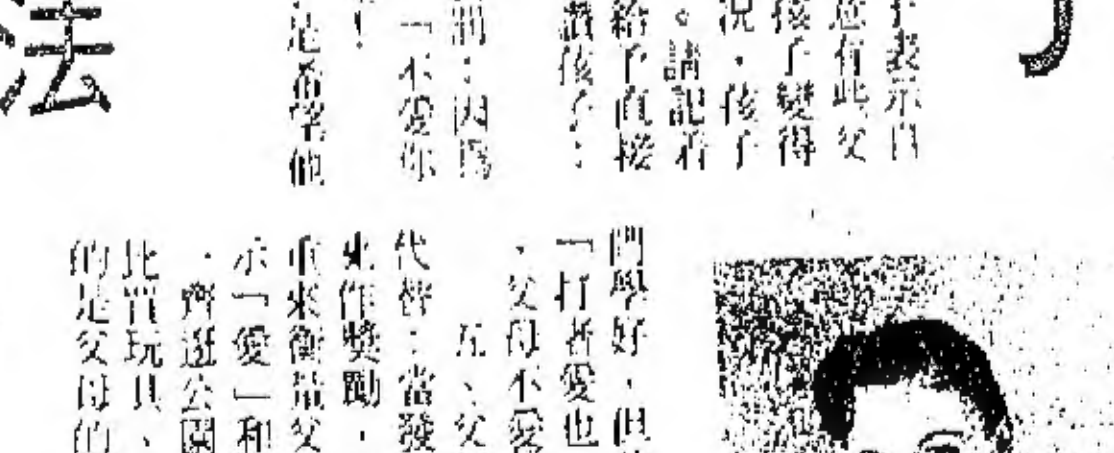 法
子表示自
意有此父
孩子變得
況，孩子
。請記着
給予直接
讀孩子：
：因爲
「不愛你
！
是希望他
問學好，但
「打者愛也
，父母不愛
五、父
代替：當發
來作獎勵，
重來衡量父
示「愛」和
，齊逛公園
比買玩具、
的是父母的